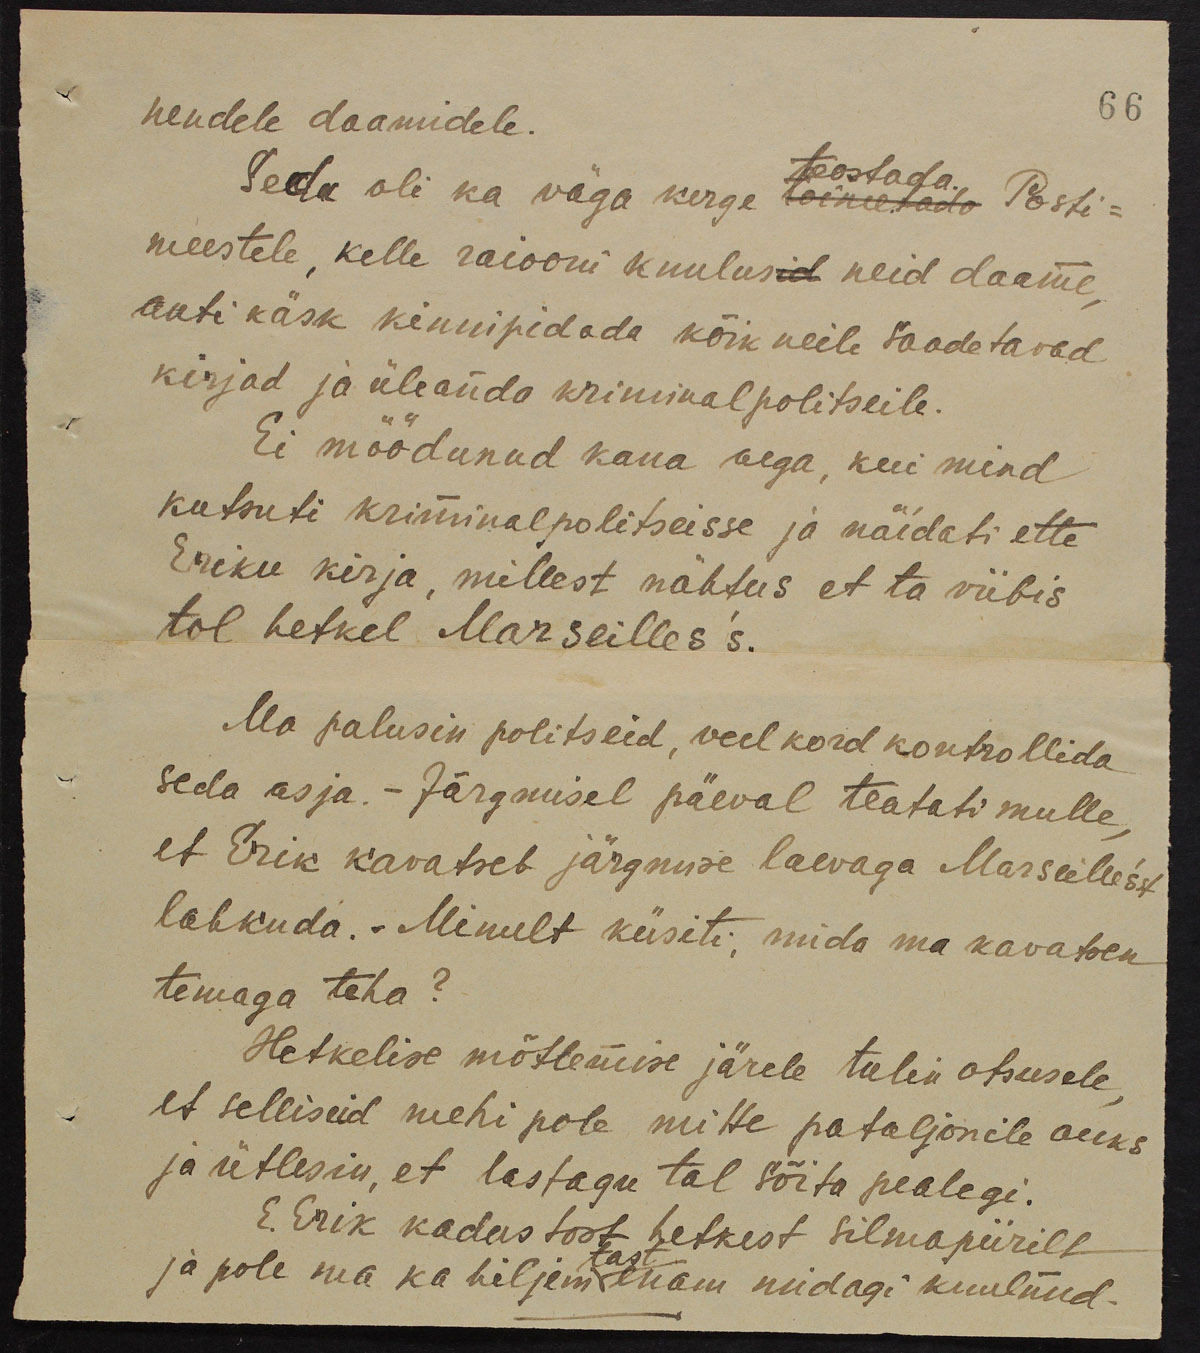 66
nendele daamidele.
Seda oli ka väga kerge toimetada teostada. Posti=
meestele, kelle raiooni kuulusid neid daame,
anti käsk kinnipidada kõik neile saadetavad
kirjad ja üleanda kriminalpolitseile.
Ei möödunud kaua aega, kui mind
kutsuti kriminalpolitseisse ja näidati ette
Eriku kirja, millest nähtus et ta viibis
tol hetkel Marseilles's.
Ma palusin politseid, veelkord kontrollida
seda asja. - Järgmisel päeval teatati mulle,
et Erik kavatseb järgmise laevaga Marseille'st
lahkuda. - Minult küsiti, mida ma kavatsen
temaga teha?
Hetkelise mõtlemise järele tulin otsusele,
et selliseid mehi pole mitte pataljonile auks
ja ütlesin, et lastagu tal sõita pealegi.
E. Erik kadus sost hetkest silmapiirilt
ja pole ma ka hiljem tast enam midagi kuulnud.